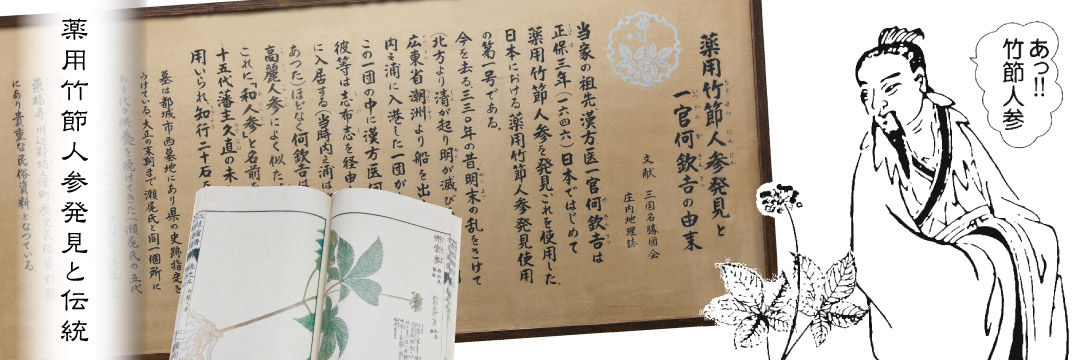 あっ!!
竹節人参
薬用竹節人参発見と
一官何欽吉の由来
文献 三国名勝図会
庄内地理誌
当家の祖先漢方医一官何欽吉は
正保三年(一六四六)日本ではじめて
薬用竹節人参を発見これを使用した
日本における薬用竹節人参発見使用
の第一号である。
今を去る三三〇年の昔、明末の乱をさけて
(北方より清が起り明が滅び
広東省潮州より船を出
内之浦に入港した一団が
この一団の中に漢方医何
彼等は志布志を経由
に入居する(当時内之浦は
あつた)ほどなく何欽吉は
高麗人参によく似た
これに「和人参」と名前を
十五代藩主久直の未
用いられ知行二十石を
墓は都城市西墓地にあり県の史跡指定を
うけている。大正の末期まで瀬尾氏と同一個所に
あり代々供養を続けてきた(瀬尾氏の五代
にあり貴重な民俗資料となつている
薬用竹節人参発見と伝統